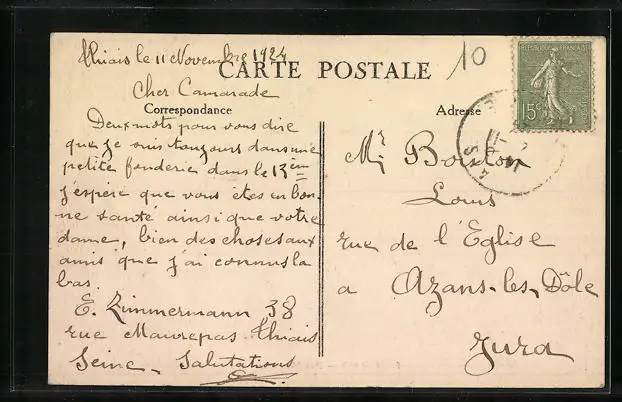 Thiais le 11 Novembre 1924
10
RÉPUBLIQUE FRANÇAISE
15c
CARTE POSTALE
Cher Camarade
Correspondance
Deux mots pour vous dire
que je suis toujours dans une
petite fonderie dans le 13ème
j'espère que vous êtes en bon-
ne santé ainsi que votre
dame, bien des choses aux
amis que j'ai connus la
bas.
E. Zimmermann 38
rue Maurepas Thiais
Seine - Salutations
Adresse
Mr
Louis
rue de l'Eglise
a Azans-les-Dôle
Jura